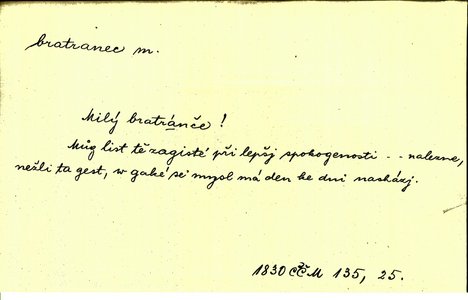 bratranec m.
Milý bratránče !
Můg list tě zagisté při lepšj spokogenosti -- nalezne,
nežli ta gest, w gaké se mysl má den ke dni nacházj.
1830 ČČM 135, 25.